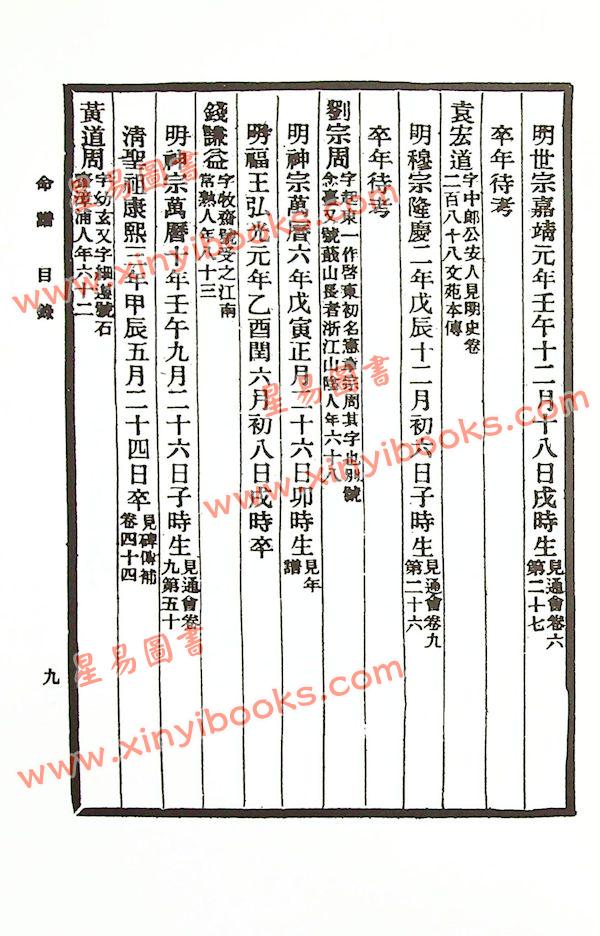 明世宗嘉靖元年壬午十二月十八日戌時生見通會卷六第二十七
卒年待考
袁宏道字中郎公安人見明史卷二百八十八文苑本傳
明穆宗隆慶二年戊辰十二月初六日子時生見通會卷九第二十六
卒年待考
劉宗周字起東一作啓東初名憲章宗周其字也別號念臺又號蕺山長者浙江山陰人年六十八
明神宗萬曆六年戊寅正月二十六日卯時生見年譜
明福王弘光元年乙酉閏六月初八日戌時卒
錢謙益字牧齋號受之江南常熟人年八十三
明神宗萬曆十年壬午九月二十六日子時生見通會卷九第五十
清聖祖康熙三年甲辰五月二十四日卒見碑傳補卷四十四
黃道周字幼玄又字細遵號石齋漳浦人年六十二
命譜 目錄
九
星易圖書
www.xinyibooks.com
星易圖書
www.xinyibooks.com
星易圖書
www.xinyibooks.com